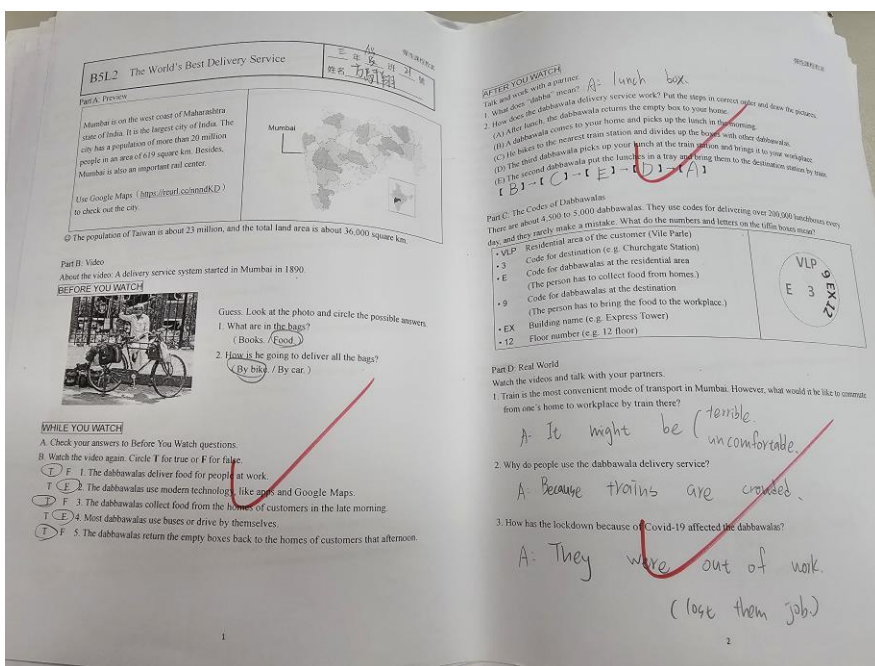 B5L2 The World's Best Delivery Service
三 年 班 號
姓名
Part A: Preview
Mumbai is on the west coast of Maharashtra
state of India. It is the largest city of India. The
city has a population of more than 20 million
people in an area of 619 square km. Besides,
Mumbai is also an important rail center.
Use Google Maps (https://reurl.cc/nnndKD)
to check out the city.
Mumbai
☺The population of Taiwan is about 23 million, and the total land area is about 36,000 square km.
Part B: Video
About the video: A delivery service system started in Mumbai in 1890.
BEFORE YOU WATCH
Guess. Look at the photo and circle the possible answers.
1. What are in the bags?
( Books. / Food. )
2. How is he going to deliver all the bags?
( By bike. / By car. )
WHILE YOU WATCH
A. Check your answers to Before You Watch questions.
B. Watch the video again. Circle T for true or F for false.
T F 1. The dabbawalas deliver food for people at work.
T F 2. The dabbawalas use modern technology, like apps and Google Maps.
T F 3. The dabbawalas collect food from the homes of customers in the late morning.
T F 4. Most dabbawalas use buses or drive by themselves.
T F 5. The dabbawalas return the empty boxes back to the homes of customers that afternoon.
1
AFTER YOU WATCH
Talk and work with a partner
1. What does "dabba" mean? A: lunch box.
2. How does the dabbawala delivery service work? Put the steps in correct order and draw the pictures.
(A) After lunch, the dabbawala returns the empty box to your home.
(B) A dabbawala comes to your home and picks up the lunch in the morning.
(C) He bikes to the nearest train station and divides up the boxes with other dabbawalas.
(D) The third dabbawala picks up your lunch at the train station and brings it to your workplace.
(E) The second dabbawala put the lunches in a tray and bring them to the destination station by train.
【 B 】→【 C 】→【 E 】→【 D 】→【 A 】
Part C: The Codes of Dabbawalas
There are about 4,500 to 5,000 dabbawalas. They use codes for delivering over 200,000 lunchboxes every
day, and they rarely make a mistake. What do the numbers and letters on the tiffin boxes mean?
• VLP Residential area of the customer (Vile Parle)
• 3 Code for destination (e.g. Churchgate Station)
• E Code for dabbawalas at the residential area
(The person has to collect food from homes.)
• 9 Code for dabbawalas at the destination
(The person has to bring the food to the workplace.)
• EX Building name (e.g. Express Tower)
• 12 Floor number (e.g. 12 floor)
VLP
E 3
9 EX12
Part D: Real World
Watch the videos and talk with your partners.
1. Train is the most convenient mode of transport in Mumbai. However, what would it be like to commute
from one's home to workplace by train there?
A: It might be ( terrible.
uncomfortable.
2. Why do people use the dabbawala delivery service?
A: Because trains are crowded.
3. How has the lockdown because of Covid-19 affected the dabbawalas?
A: They were out of work.
(lost them job.)
2